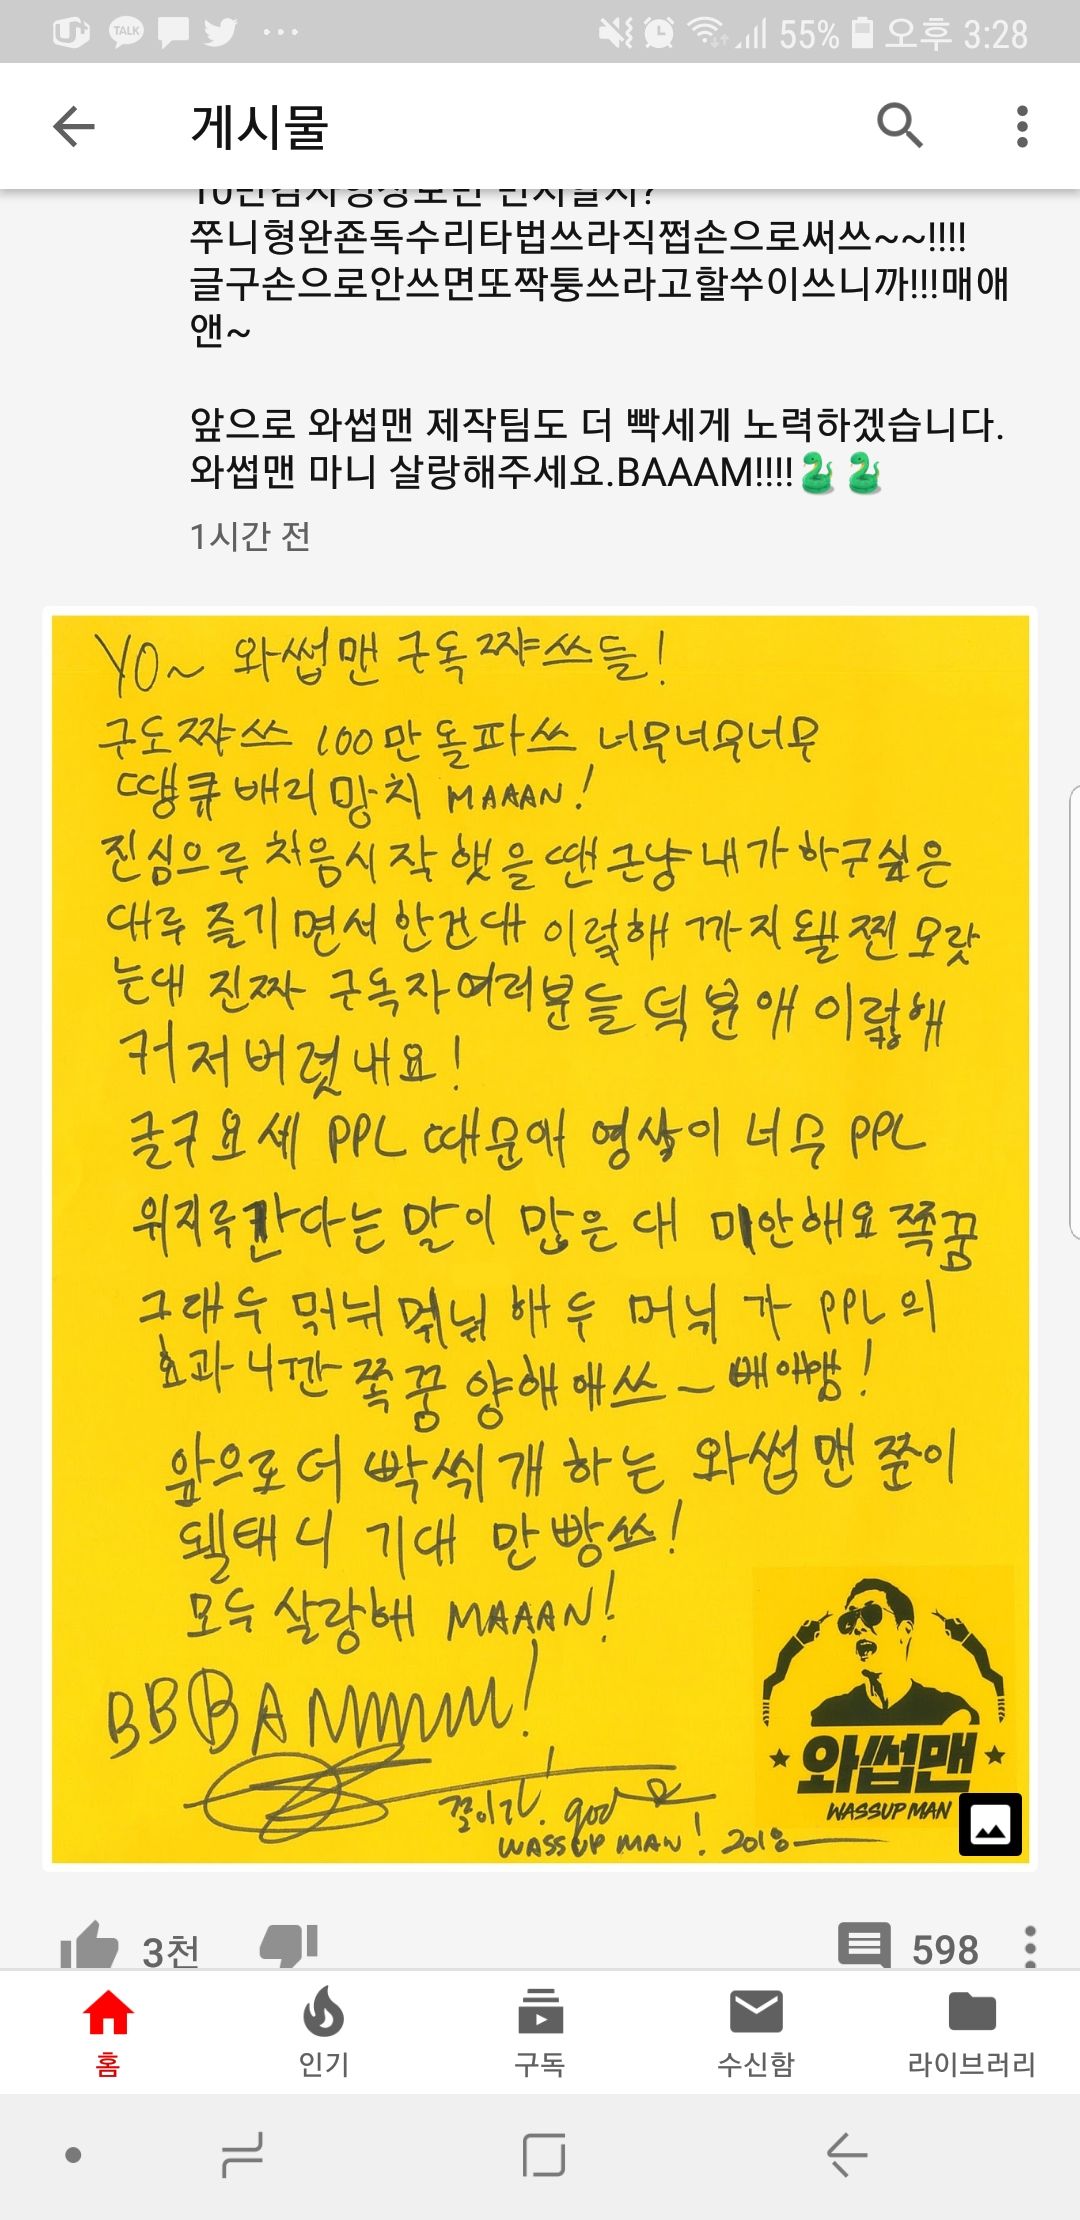 TALK
55% 오후 3:28
게시물
10만감사영상보면 먼지알지?
쭈니형완죤독수리타법쓰라직쩝손으로써쓰~~!!!!
글구손으로안쓰면또짝퉁쓰라고할쑤이쓰니까!!!매애
앤~
앞으로 와썹맨 제작팀도 더 빡세게 노력하겠습니다.
와썹맨 마니 살랑해주세요.BAAAM!!!!🐍🐍
1시간 전
YO~ 와썹맨 구독쨔쓰들!
구도쨔쓰 100만 돌파쓰 너무너무너무
땡큐 배리 망치 MAAAN!
진심으루 처음시작 햇을땐 근냥 내가 하구싶은
대루 즐기면서 안건대 이렇해 까지 됄찐 모랏
는대 진짜 구독자 여러분들 덕분애 이렇해
커저버렸내요!
글구 요세 PPL 때문애 영상이 너무 PPL
위지루 간다는 말이 많은대 미안해요 쪽꿈
그래두 뭐뉘뭐뉘 해두 머늬가 PPL의
효과니깐 쪽꿈 양해애쓰~ 빼애앰!
앞으로 더 빡씩개 하는 와썹맨 쭌이
됄태니 기대 만빵쓰!
모두 살랑해 MAAAN!
BBBAMMMM!
쭌이가. god
WASSUP MAN! 2018
와썹맨
WASSUP MAN
3천 598
홈 인기 구독 수신함 라이브러리